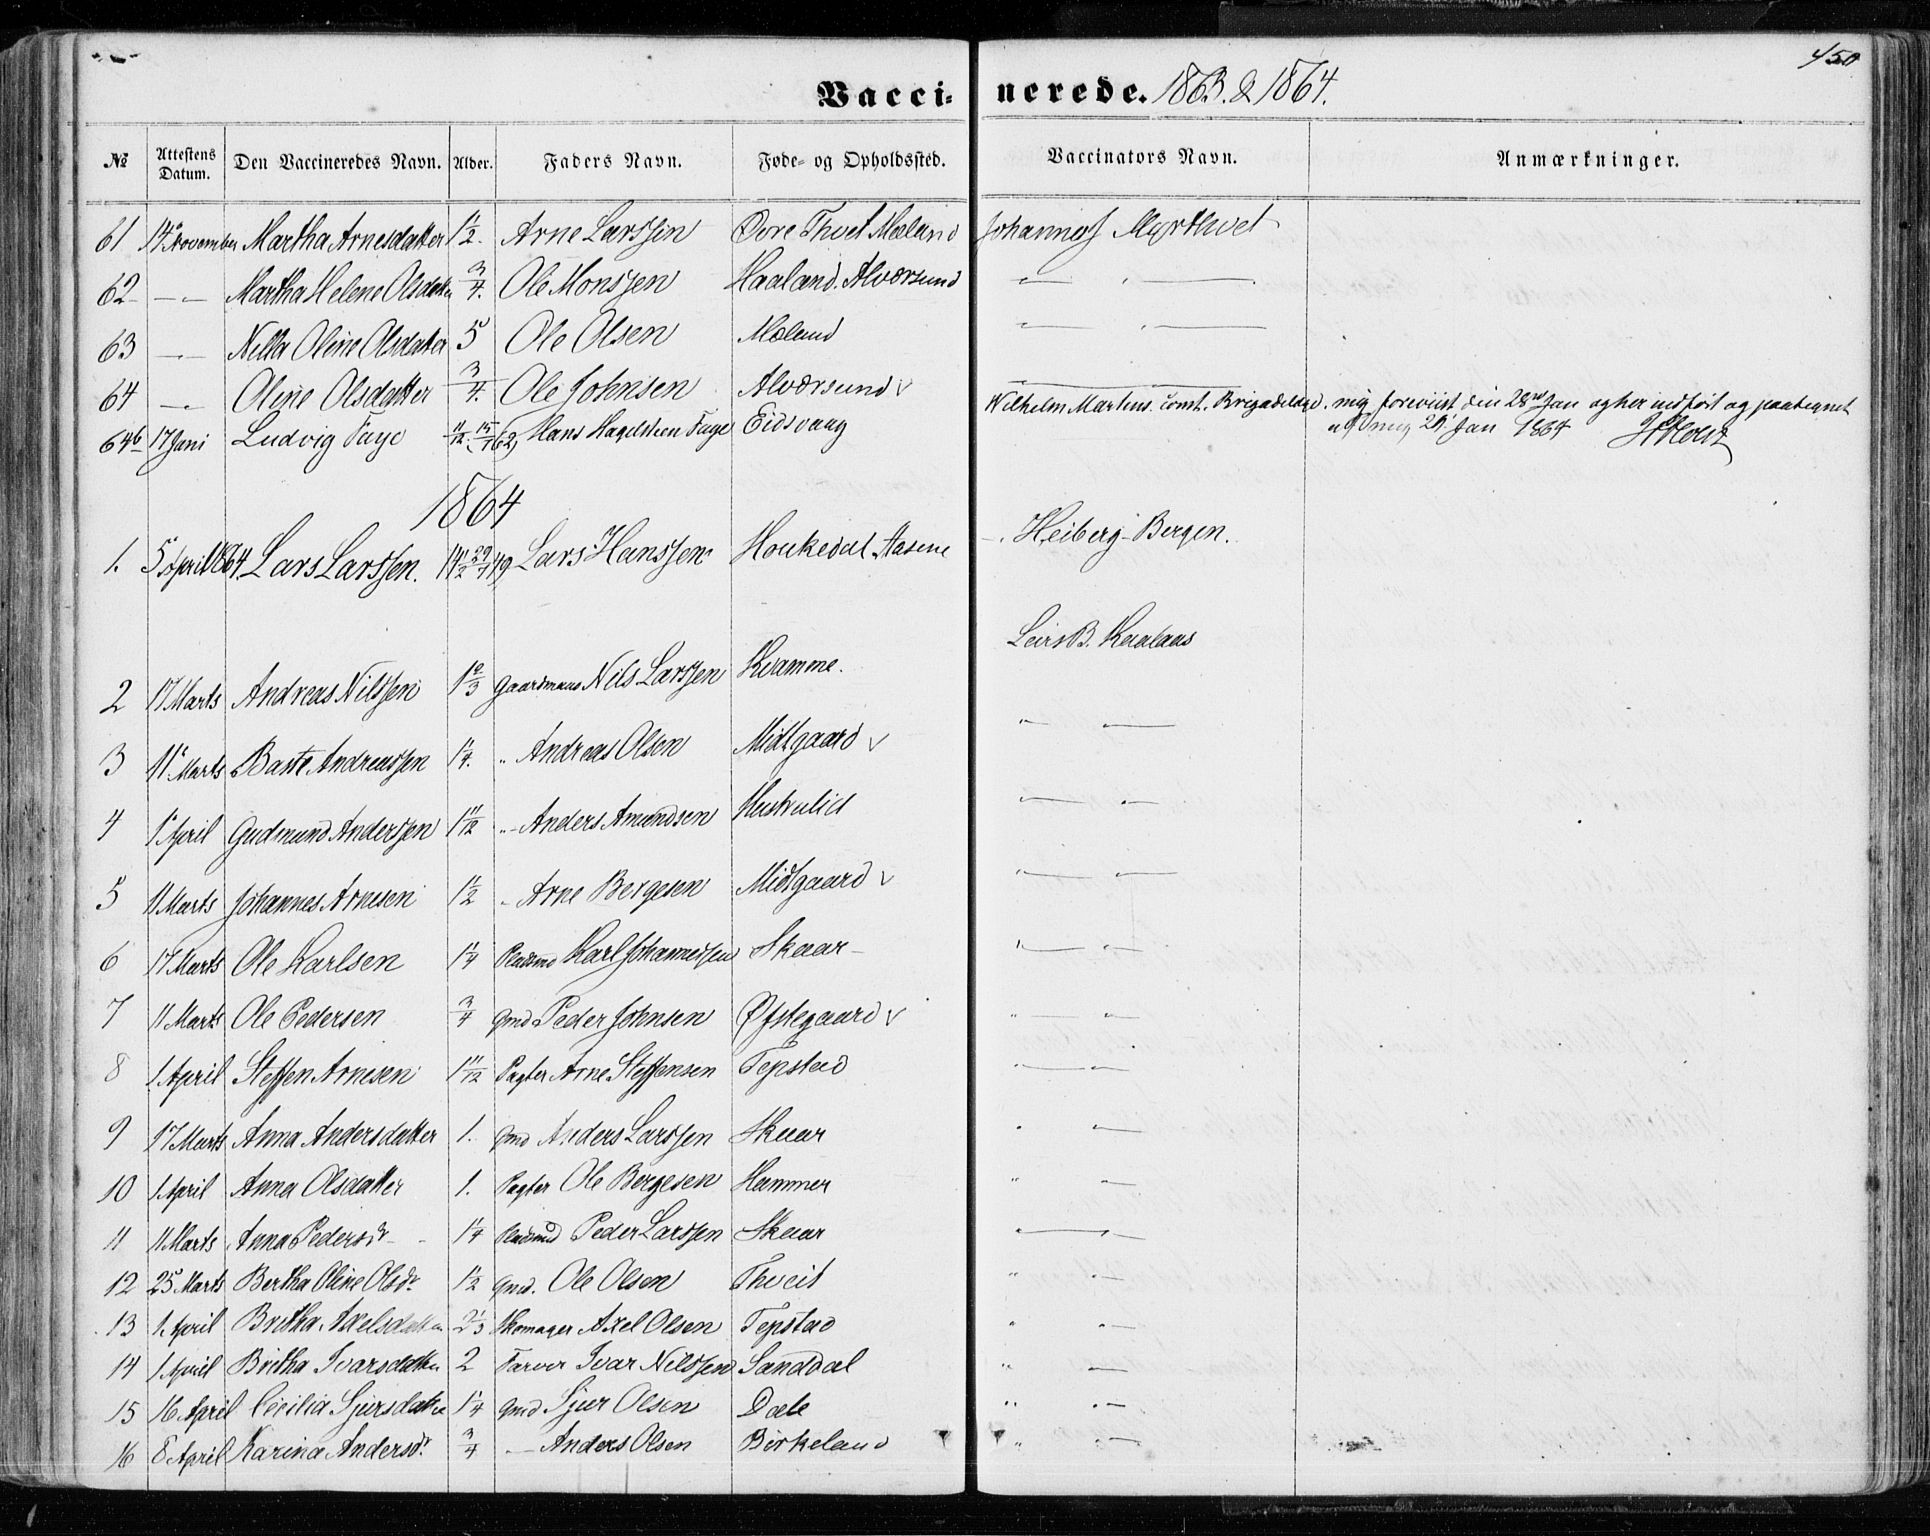 450
Vaccinerede. 1863. & 1864.
№ Attestens Datum. Den Vaccineredes Navn. Alder. Faders Navn. Føde- og Opholdssted. Vaccinators Navn. Anmærkninger.
61 14 November Martha Arnesdatter 1 1/2. Arne Larssen Øvre Thvet Mæland Johannes Myrthvet
62 — „ — Martha Helene Olsdatter 3/4. Ole Monssen Haaland. Alværsund — „ —
63 — „ — Nilla Oline Olsdatter 5 Ole Olsen Mæland — „ —
64 — „ — Oline Olsdatter 3/4. Ole Johnsen Alværsund v
64b 17 Juni Ludvig Faye 11/12. (15/7 62) Hans Hagelsteen Faye Eidsvaag Wilhelm Martens const. Brigadelæge. mig foreviist den 28de Jan og her indført og paategnet
af mig 29 Jan 1864 Holst
1864
1. 5 April 1864 Lars Larssen. 14 1/2 29/7 49) Lars Hanssen Houkedal Aasene Heiberg - Bergen.
2 17 Marts Andreas Nilssen 1 2/3 Gaardmand Nils Larssen Kvamme. Lars B. Kaalaas
3 11 Marts Baste Andreassen 1 1/4. „ Andreas Olsen Midtgaard v „ — „ —
4 1 April Gudmund Anderssen 1 11/12 „ - Anders Amundsen Haukulid „ — „ —
5 11 Marts Johannes Arnesen 1 1/2 „ Arne Bergesen Midtgaard v „ — „ —
6 17 Marts Ole Karlsen 1 1/4 Pladsmd Karl Johannessen Skaar — „ — „ —
7 11 Marts Ole Pedersen 3/4 Gmd Peder Johnsen Øfstegaard v „ — „ —
8 1 April Steffen Arnesen 1 11/12 Pagter Arne Steffensen Tepstad „ — „ —
9 17 Marts Anna Andersdatter 1. Gmd Anders Larssen Skaar „ „ —
10 1 April Anna Olsdatter 1. Pagter Ole Bergesen Hammer „ „ —
11 11 Marts Anna Pedersdr - - 1 1/4 Pladsmd Peder Larssen Skaar „ — „ —
12 25 Marts Bertha Oline Olsdr 1 1/2 Gmd. Ole Olsen Thveit „ „ —
13 1 April Britha Axelsdatter 2 1/3 Skomager Axel Olsen Tepstad „ „ —
14 1 April Britha Ivarsdatter 2 Farver Ivar Nilssen Sanddal „ „ —
15 16 April Cecilia Sjursdatter 1 1/4 Gmd Sjur Olsen Dale „ „ —
16 8 April Karina Andersdr 3/4 — Anders Olsen Birkeland „ „ —